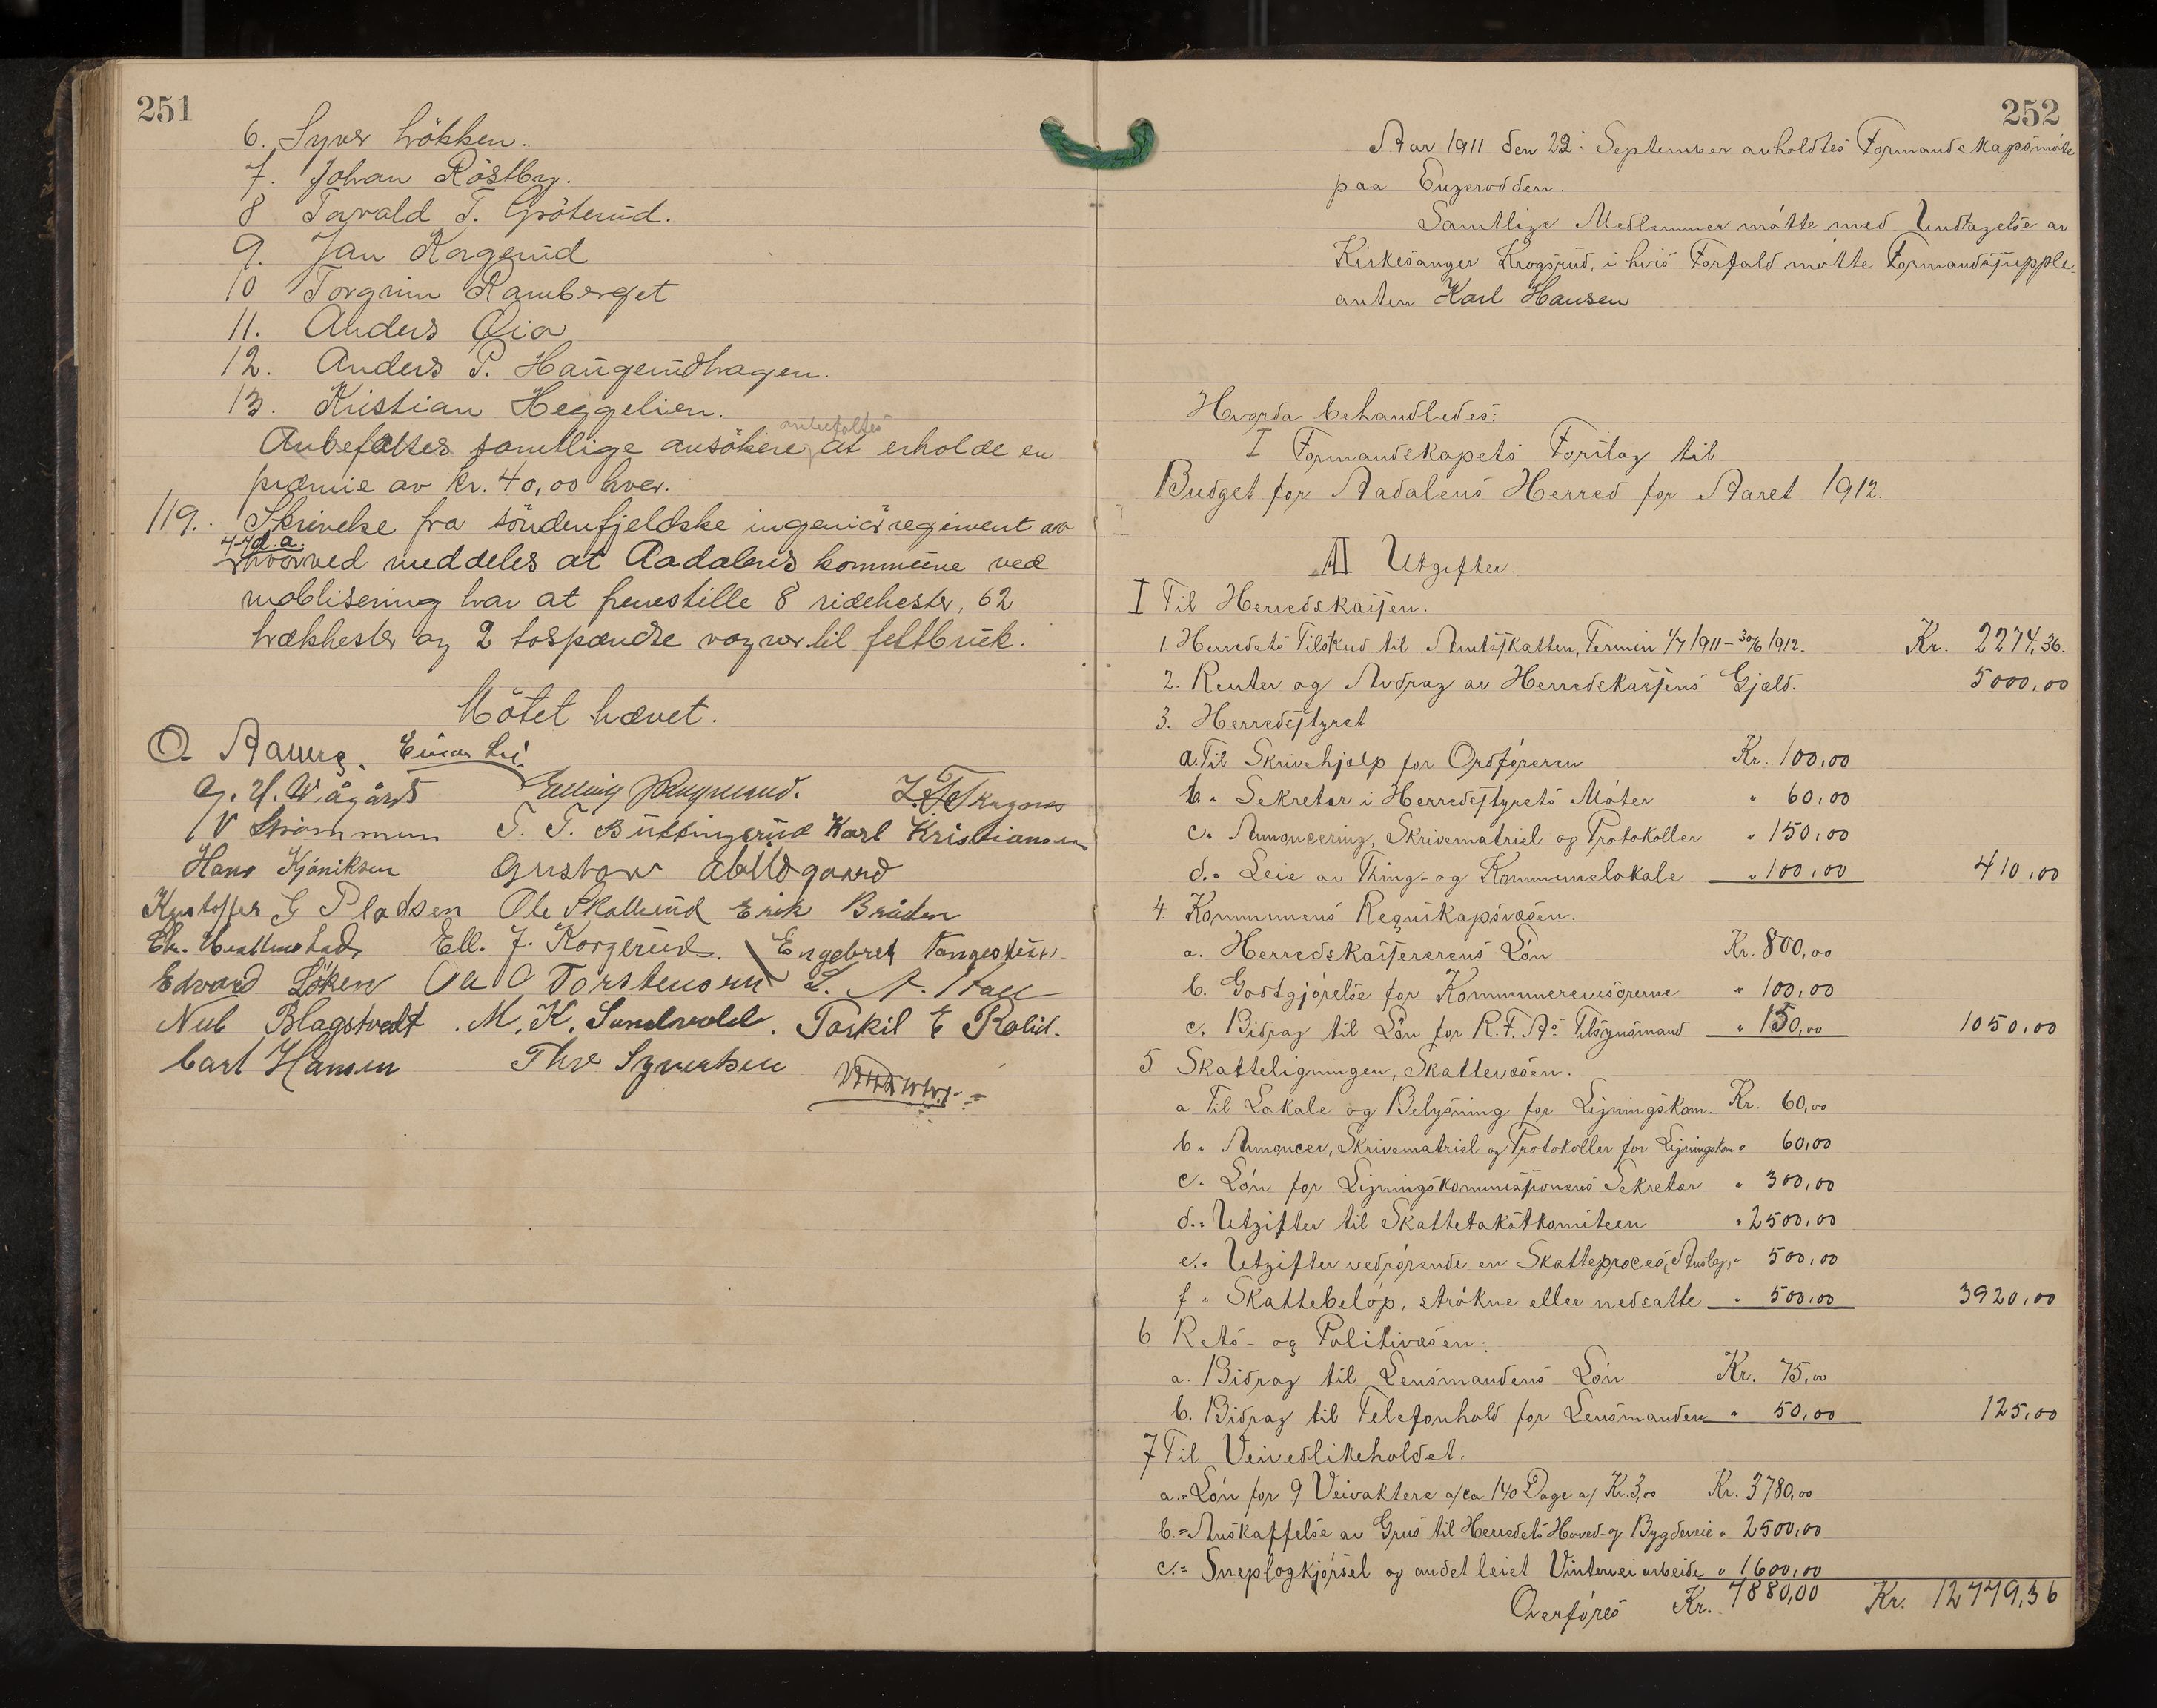 251
6. Syver Lökken.
7. Johan Röstby.
8 Tarald T. Gröterud.
9. Jan Korgerud
10 Torgrim Ramberget
11. Anders Öia
12. Anders P. Haugerudhagen.
13. Kristian Heggelien.
anbefaltes
Anbefaltes samtlige ansökere at erholde en
præmie av kr. 40,00 hver.
119. Skrivelse fra söndenfjeldske ingeniörregiment av
4-7 d.a.
hvorved meddeles at Aadalens kommune ved
moblisering har at fremstille 8 ridehester, 62
trækhester og 2 tospændte vogner til feltbruk.
Mötet hævet.
O Aaberg. Einar Li.
G. H. Wågård Elling
Strømmen T. T. Buttingsrud Karl Kristiansen
Hans Kjöniksen Gustav Abildgaard
Kristoffer G Pladsen Ole Skollerud Erik Bråten
Ell. J. Korgerud. Engebret Tangestuen
Edvard Löken Ole O Torstensen L. A.
Nub Blagstvedt. M. K. Sandvold. Torkil E Rolid.
Carl Hansen Thv Syvertsen
252
Aar 1911 den 22: September avholdtes Formandskapsmöte
paa Engerodden.
Samtlige Medlemmer mötte med Undtagelse av
Kirkesanger Krogsrud, i hvis Forfald mötte Formandssupple-
anten Karl Hansen
Hvorda behandledes:
I Formandskapets Forslag til
Budget for Aadalens Herred for Aaret 1912.
A Utgifter.
I Til Herredskassen.
1. Herredets Tilskud til Amtsskatten, Termin 1/7 1911 - 30/6 1912. Kr. 2274,36.
2. Renter og Avdrag av Herredskassens Gjæld. 5000,00
3. Herredsstyret
a. Til Skrivehjælp for Ordföreren Kr. 100,00
b. " Sekretær i Herredsstyrets Möter " 60,00
c. " Annoncering, Skrivematriel og Protokoller " 150,00
d. " Leie av Thing- og Kommunelokale " 100,00 410,00
4. Kommunens Regnskapsvæsen.
a. Herredskassererens Lön Kr. 800,00
b. Godtgjörelse for Kommunerevisorerne " 100,00
c. Bidrag til Lön for R. F. As Tilsynsmand " 150,00 1050,00
5 Skatteligningen, Skattevæsen.
a Til Lokale og Belysning for Ligningskom. Kr. 60,00
b. " Annoncer, Skrivematriel og Protokoller for Ligningskom " 60,00
c. " Lön for Ligningskommissionens Sekretær " 300,00
d. " Utgifter til Skattetakstkomiteen " 2500,00
e. " Utgifter vedrörende en Skatteproces, Anslag, " 500,00
f " Skattebelöp, strökne eller nedsatte " 500,00 3920,00
6 Rets- og Politivæsen:
a. Bidrag til Lensmandens Lön Kr. 75,00
b. Bidrag til Telefonhold for Lensmanden " 50,00 125,00
7 Til Veivedlikeholdet.
a. " Lön for 9 Veivaktere a/ca 140 Dage a/ Kr. 3,00 Kr. 3780,00
b. " Anskaffelse av Grus til Herredets Hoved- og Bygdeveie " 2500,00
c. " Sneplogkjörsel og andet leiet Vinterveiarbeide " 1600,00
Overföres Kr. 7880,00 Kr. 12779,36